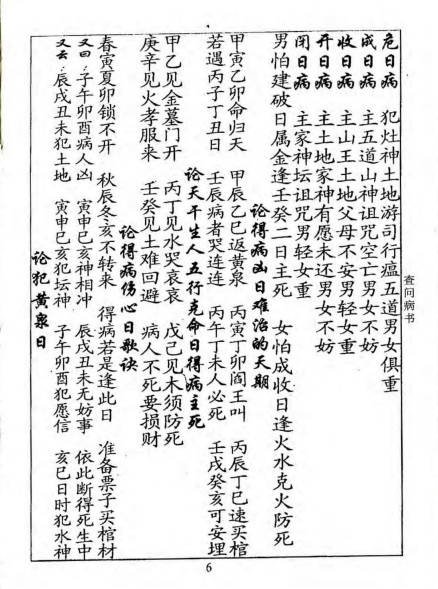 查问病书
危日病 犯灶神土地游司行瘟五道男女俱重
成日病 主五道山神诅咒空亡男女不妨
收日病 主山王土地父母不安男轻女重
开日病 主土地家神有愿未还男女不妨
闭日病 主家神坛诅咒男轻女重
男怕建破日属金逢壬癸二日主死 女怕成收日逢火水克火防死
论得病凶日难治的天期
甲寅乙卯命归天 甲辰乙巳返黄泉 丙寅丁卯阎王叫 丙辰丁巳速买棺
若遇丙子丁丑日 壬辰病者哭连连 丙午丁未人必死 壬戌癸亥可安埋
论天干生人五行克命日得病主死
甲乙见金墓门开 丙丁见水哭哀哀 戊己见木须防死
庚辛见火孝服来 壬癸见土难回避 病人不死要损财
论得病伤心日歌诀
春寅夏卯锁不开 秋辰冬亥不转来 得病若是逢此日 准备票子买棺材
又曰：子午卯酉病人凶 寅申巳亥神相冲 辰戌丑未无妨事 依此断得死生中
又云：辰戌丑未犯土地 寅申巳亥犯坛神 子午卯酉犯愿信 亥巳日时犯水神
论犯黄泉日
6